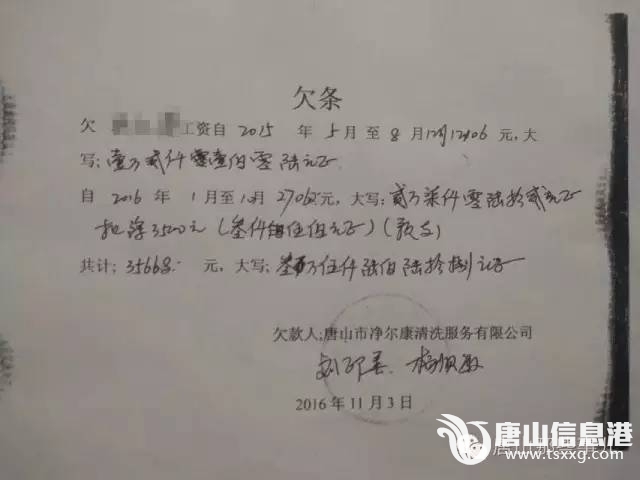 欠条
欠 工资自 2015 年 5月 至 8 月 12106 元,大
写:壹万贰仟壹佰零陆元正
自 2016 年 1月至10月 27062元,大写:贰万柒仟零陆拾贰元正
扣除3500元(叁仟伍佰元正)(预支)
共计:35668. 元,大写:叁万伍仟陆佰陆拾捌元正
欠款人:唐山市净尔康清洗服务有限公司
2016 年 11 月 3 日
唐山信息港
www.tsxxg.com